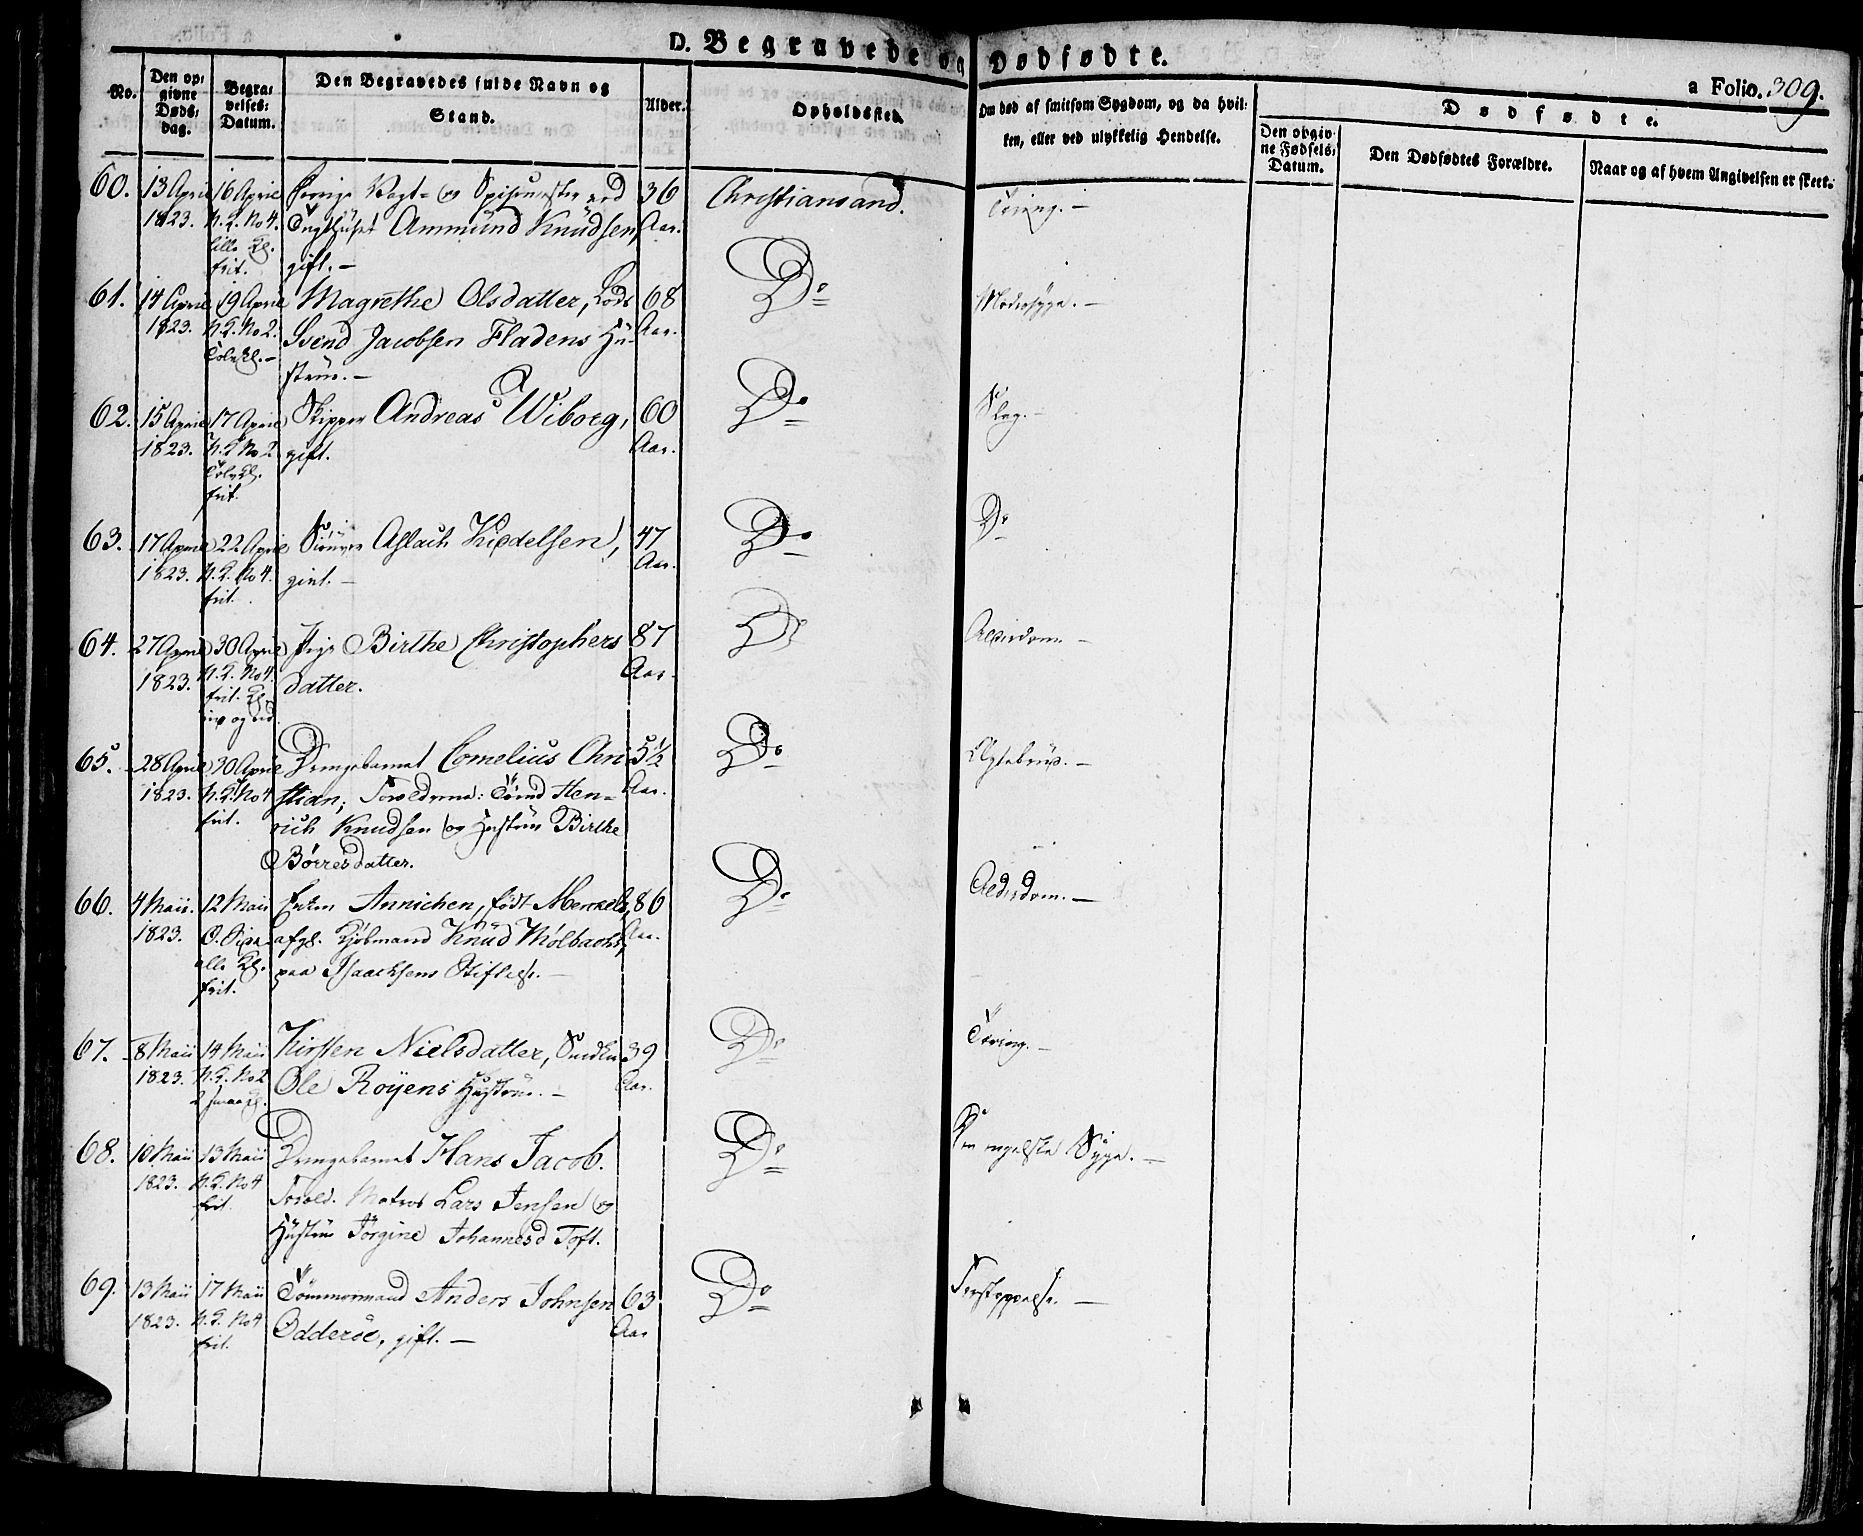 D. Begravede og Dødfødte.
a Folio. 309.
No.
Den op-
givne
Døds-
dag.
Begra-
velses-
Datum.
Den Begravedes fulde Navn og
Stand.
Alder.
Opholdssted.
Om død af smitsom Sygdom, og da hvil-
ken, eller ved ulykkelig Hendelse.
Dødfødte.
Den opgiv-
ne Fødsels-
Datum.
Den Dødfødtes Forældre.
Naar og af hvem Angivelsen er skeet.
60. 13 April 16 April Forrige Vogt- og Spisemester ved 36 Christiansand. Tæring. –
1823. N. K. No 4. Tugthuset Ammund Knudsen, Aar.
lille Kl.
frit. gift. –
61. 14 April 19 April Magrethe Olsdatter, Lods 68 Do Modersyge. –
1823. N. K. No 2. Svend Jacobsen Fladens Hu- Aar.
Tolv Kl. – strue. –
62. 15 April 17 April Skipper Andreas Wiborg, 60 Do Slag. –
1823. N. K. No 2 gift. Aar.
Tolv Kl.
frit.
63. 17 April 22 April Aslach Kieddelsen, 47 Do Do
1823. N. K. No 4. givt. – Aar.
frit.
64. 27 April 30 April Pige Birthe Christophers 87 Do Alderdom. –
1823. N. K. No 4. datter. Aar.
frit. Kl.
65. 28 April 30 April Drengebarnet Cornelius Chri 5 1/2 Do
1823. N. K. No 4 stian; Forældrene: Hen- Aar.
frit. rich Knudsen og Hustrue Birthe
Børresdatter.
66. 4 Maii. 12 Maii Enken Annichen, født 86 Do Alderdom. –
1823. afgl. Kjøbmand Knud Mølbachs, Aar.
alle Kl. paa Isaachsens Stiftelse. –
frit.
67. 8 Maii 14 Maii Kirsten Nielsdatter, 39 Do Tæring. –
1823. N. K. No 2 Ole Røyens Hustrue. – Aar.
2 smaa Kl.
68. 10 Maii 13 Maii Drengebarnet Hans Jacob. Do Den engelske Syge. –
1823. N. K. No 4 Foræld. Matros Lars Jensen og
frit. Hustrue Jørgine Johannesd Toft.
69. 13 Maii 17 Maii Tømmermand Anders Johnsen 63 Do Forstoppelse. –
1823. N. K. No 4 Odderøe, gift. – Aar
frit.